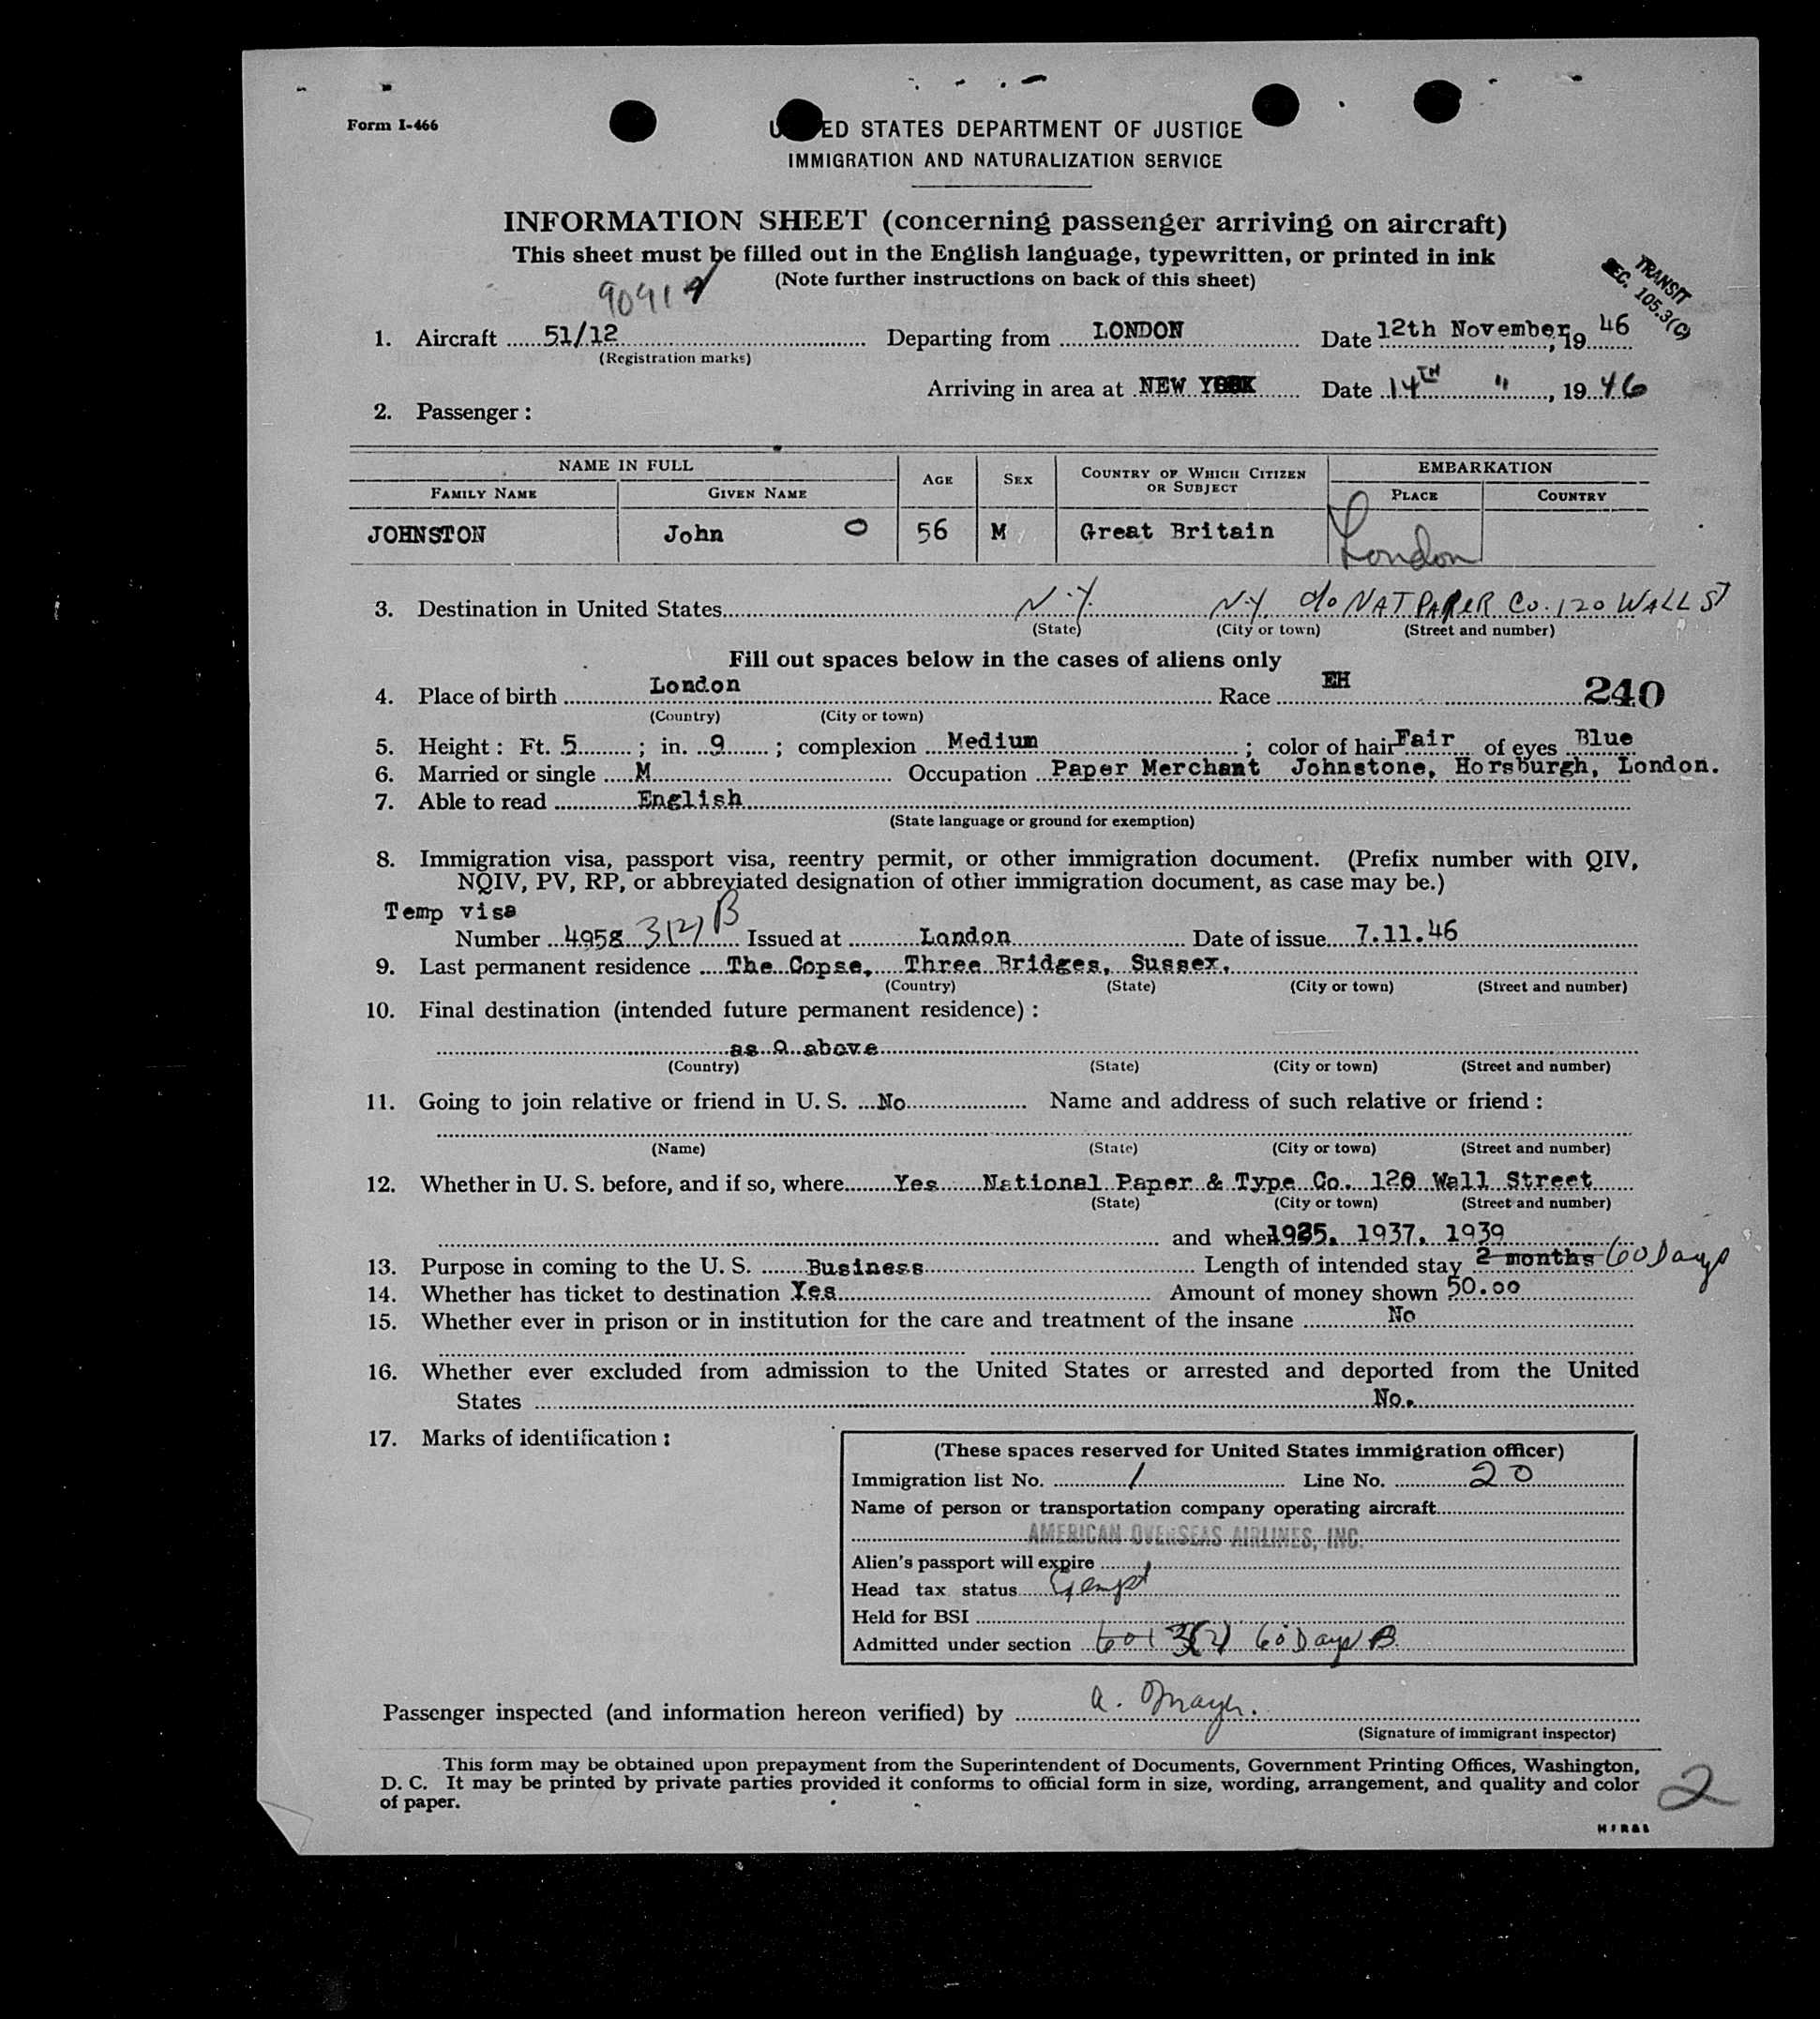 Form I-466
ED STATES DEPARTMENT OF JUSTICE
IMMIGRATION AND NATURALIZATION SERVICE
INFORMATION SHEET (concerning passenger arriving on aircraft)
This sheet must be filled out in the English language, typewritten, or printed in ink
(Note further instructions on back of this sheet)
TRANSIT
SEC. 105.3(C)
1. Aircraft 51/12 Departing from LONDON Date 12th November, 19 46
(Registration marks)
Arriving in area at NEW YORK Date 14TH " , 19 46
2. Passenger:
NAME IN FULL AGE SEX COUNTRY OF WHICH CITIZEN OR SUBJECT EMBARKATION
FAMILY NAME GIVEN NAME PLACE COUNTRY
JOHNSTON John O 56 M Great Britain London
3. Destination in United States N.Y. N.Y. c/o NAT PAPER Co. 120 WALL ST
(State) (City or town) (Street and number)
Fill out spaces below in the cases of aliens only
4. Place of birth London Race EH 240
(Country) (City or town)
5. Height: Ft. 5 ; in. 9 ; complexion Medium ; color of hair Fair of eyes Blue
6. Married or single M Occupation Paper Merchant Johnstone, Horsburgh, London.
7. Able to read English
(State language or ground for exemption)
8. Immigration visa, passport visa, reentry permit, or other immigration document. (Prefix number with QIV,
NQIV, PV, RP, or abbreviated designation of other immigration document, as case may be.)
Temp visa
Number 4958 3(2) B Issued at London Date of issue 7.11.46
9. Last permanent residence The Copse, Three Bridges, Sussex.
(Country) (State) (City or town) (Street and number)
10. Final destination (intended future permanent residence):
as 9 above
(Country) (State) (City or town) (Street and number)
11. Going to join relative or friend in U. S. No Name and address of such relative or friend:
(Name) (State) (City or town) (Street and number)
12. Whether in U. S. before, and if so, where Yes National Paper & Type Co. 120 Wall Street
(State) (City or town) (Street and number)
and when 1925, 1937, 1939
13. Purpose in coming to the U. S. Business Length of intended stay 2 months 60 Days
14. Whether has ticket to destination Yes Amount of money shown 50.00
15. Whether ever in prison or in institution for the care and treatment of the insane No
16. Whether ever excluded from admission to the United States or arrested and deported from the United
States No.
17. Marks of identification:
(These spaces reserved for United States immigration officer)
Immigration list No. 1 Line No. 20
Name of person or transportation company operating aircraft
AMERICAN OVERSEAS AIRLINES, INC.
Alien's passport will expire
Head tax status Exempt
Held for BSI
Admitted under section 3(2) 60 Days B
Passenger inspected (and information hereon verified) by A.
(Signature of immigrant inspector)
This form may be obtained upon prepayment from the Superintendent of Documents, Government Printing Offices, Washington,
D. C. It may be printed by private parties provided it conforms to official form in size, wording, arrangement, and quality and color
of paper.
2